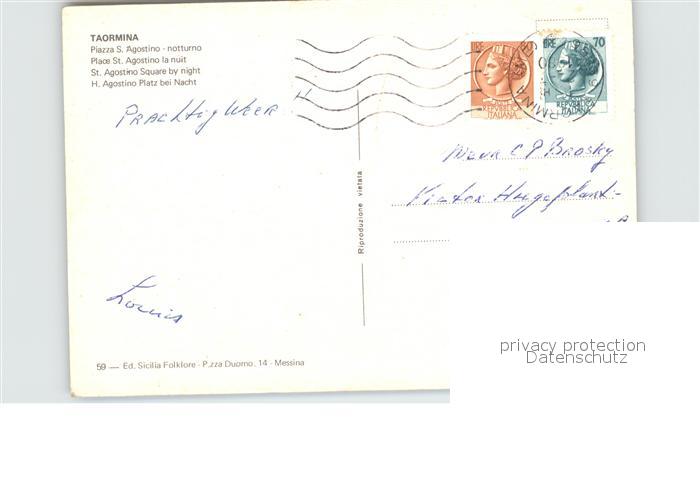 TAORMINA
Piazza S. Agostino - notturno
Place St. Agostino la nuit
St. Agostino Square by night
H. Agostino Platz bei Nacht
LIRE
LIRE 70
REPVBBLICA
ITALIANA
REPVBBLICA
ITALIANA
PRACHTIG WEER
C P Brosky
Victor
Riproduzione vietata
Louis
59 — Ed. Sicilia Folklore - P.zza Duomo, 14 - Messina
privacy protection
Datenschutz